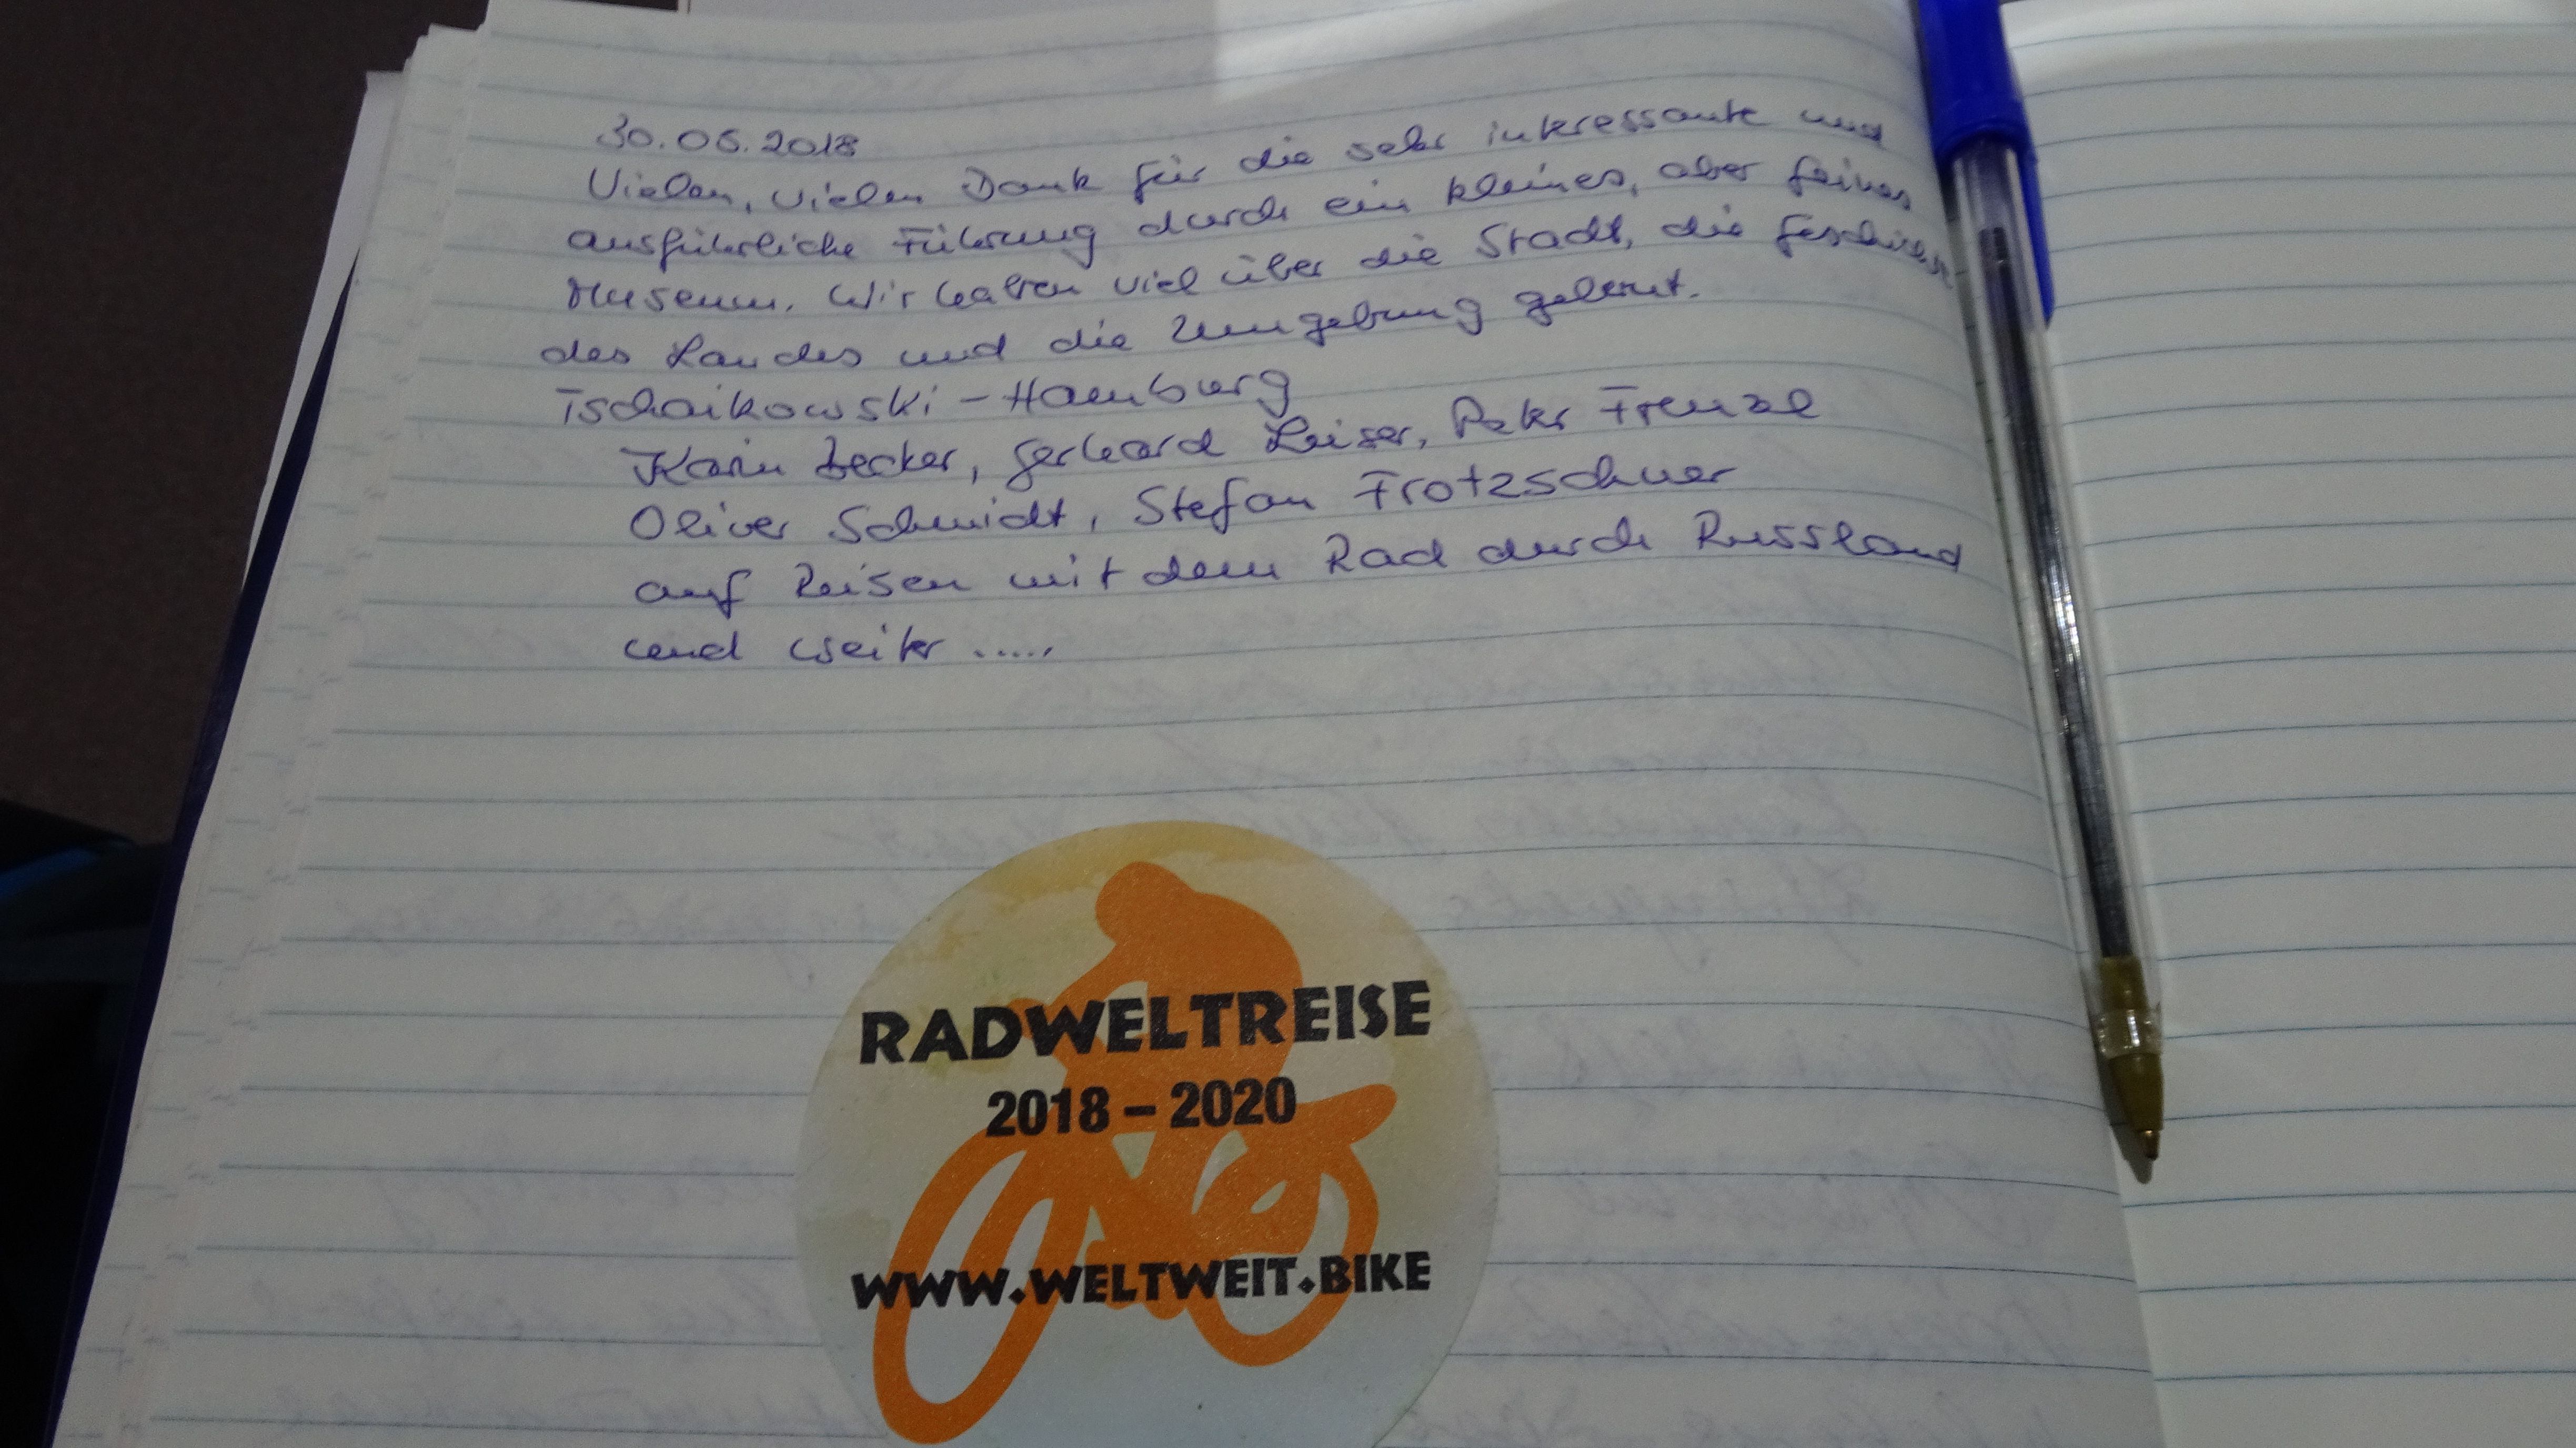 30.06.2018
Vielen, vielen Dank für die sehr interessante und
ausführliche Führung durch ein kleines, aber feines
Museum. Wir haben viel über die Stadt, die Geschichte
des Landes und die Umgebung gelernt.
Tschaikowski - Hamburg
Karin Becker, Gerhard Leiser, Peter Frenzel
Oliver Schmidt, Stefan Frotzschner
auf Reisen mit dem Rad durch Russland
und weiter .....
RADWELTREISE
2018 – 2020
WWW.WELTWEIT.BIKE